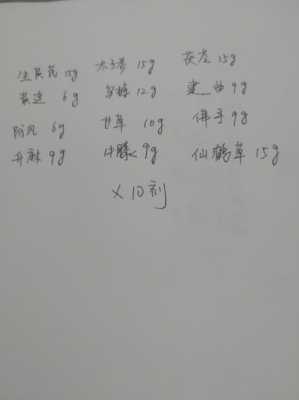 生黄芪 15g 太子参 15g 茯苓 15g
黄连 6g 12g 建曲 9g
防风 6g 甘草 10g 佛手 9g
升麻 9g 9g 仙鹤草 15g
×10剂